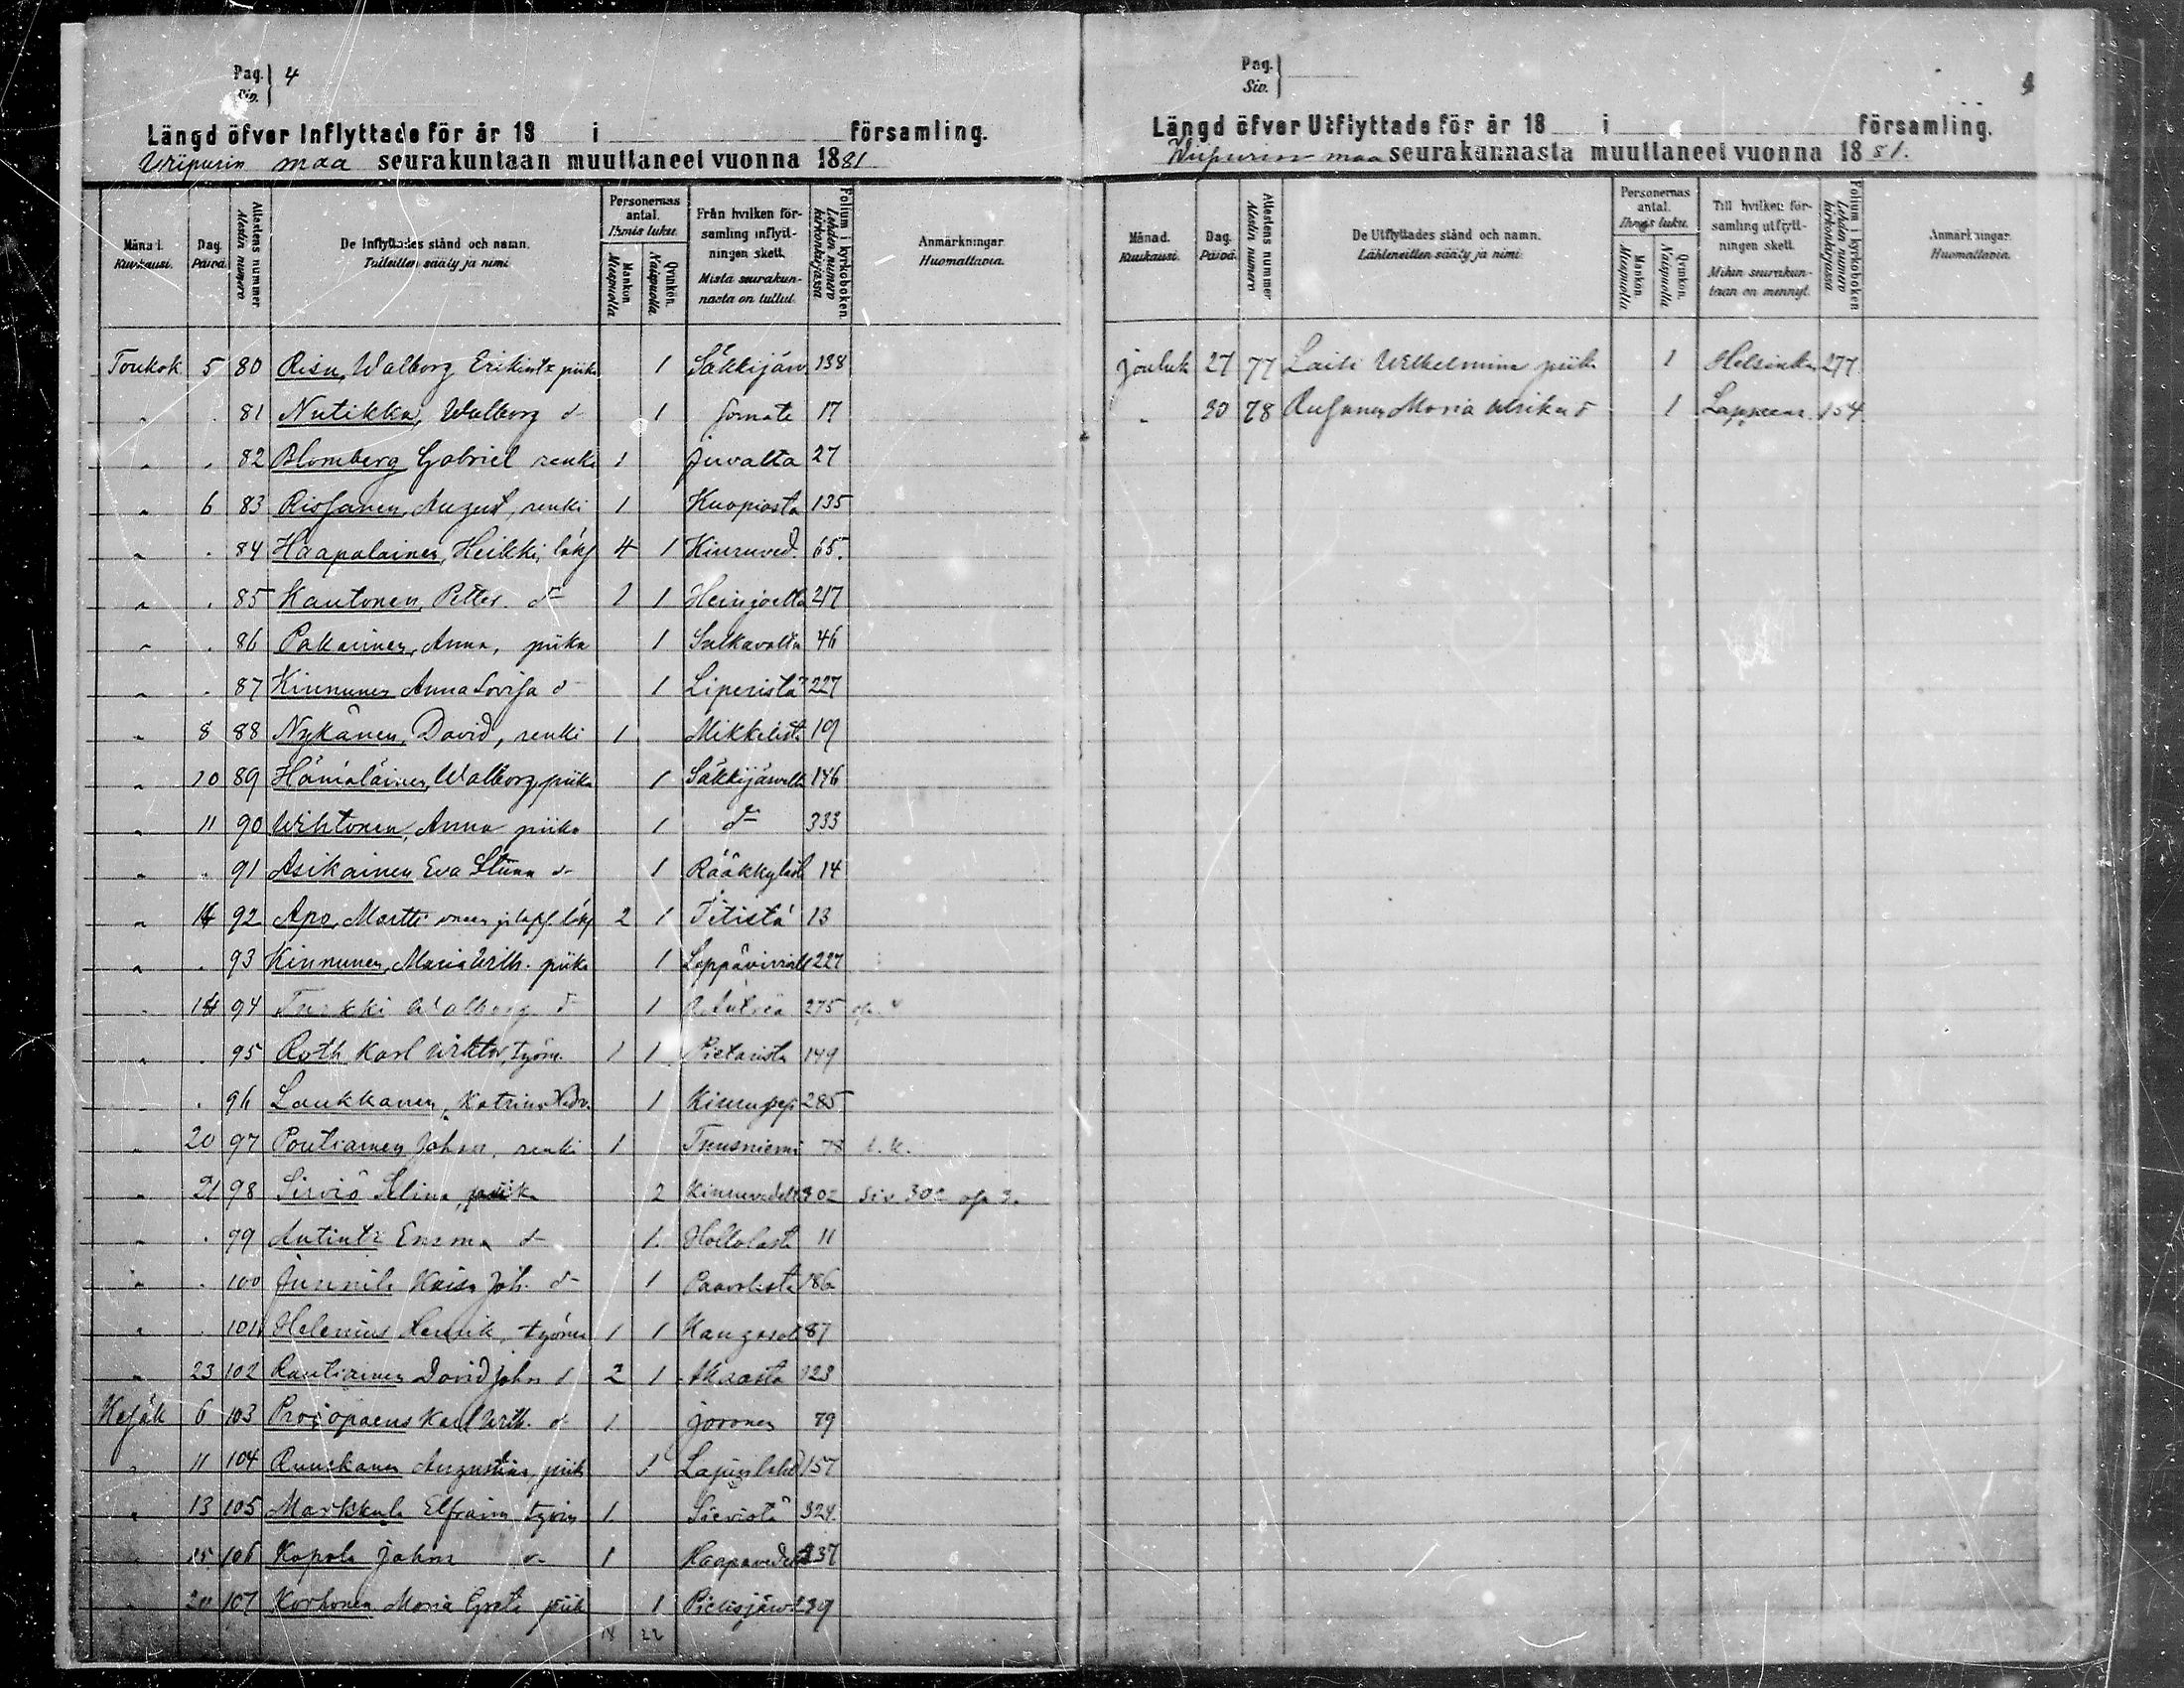 Pag. Siv. 4
Längd öfver Inflyttade för år 18 i församling.
Wiipurin maa seurakuntaan muuttaneet vuonna 1881
Månad. Kuukausi. Dag. Päivä. Attestens nummer Alestin numero De Inflyttades stånd och namn. Tulleitten sääty ja nimi Personernas antal. Ihmis luku. Mankön Miespuolia Qvinkön. Naispuolia. Från hvilken församling inflyttningen skett. Mistä seurakunnasta on tullut. Folium i kyrkoboken. Lehden numero kirkonkirjassa Anmärkningar. Huomattavia.
Toukok 5 80 Risu, Walborg Erikintr piika 1 Säkkijärv 138
" . 81 Nutikka, Walborg d- 1 17
" . 82 Blomberg Gabriel renki 1 Juvalta 27
" 6 83 Rissanen, August, renki 1 Kuopiosta 135
" . 84 Haapalainen, Heikki, 4 1 Kiuruved. 65.
" . 85 Kautonen, Petter. d- 1 1 Heinjoelta 217
" . 86 Pakarinen, Anna, piika 1 Sulkavalta 46
" . 87 Kinnunen Anna Lovisa d- 1 Liperistä 227
" 8 88 Nykänen, David, renki 1 Mikkelistä 19
" 10 89 Hämäläinen, Walborg, piika 1 Säkkijärveltä 146
" 11 90 Wihtonen, Anna piika 1 d- 333
" . 91 Asikainen Eva Stiina d- 1 Rääkkyläst 14
" 14 92 Apo, Martti 2 1 Iitistä 13
" . 93 Kinnunen, Maria Wilh. piika 1 Leppävirralt 227
" 14 94 Turkki Walborg d- 1 Antrea 275
" . 95 Roth Karl Wiktor, työm. 1 1 Pietarista 149
. 96 Laukkanen, Katrina Hedv. 1 285
" 20 97 Poutiainen Johan, renki 1 Tuusniemi 78 l. k.
" 21 98 Sirviö Selina, piika 2 Kiuruvedelt 302 siv 302
" . 99 Antintr Emma d- 1. Hollolasta 11
" . 100 Junnila Kaisa Joh. d- 1 Paavolista 186
" . 101 Helenius Henrik, työmies 1 1 Kangasal 87
" 23 102 Rautiainen David Joh 2 1 Akaasta 123
Kesäk 6 103 Procopaeus Karl Wilh. d- 1 Joronen 79
" 11 104 Ruuskanen Augustina, piik 1 Lapinlahd 157
" 13 105 Markkula Elfraim työm 1 Sievistä 324.
" 15 106 Kopola Johan d- 1 Haapavedelt 237
" 20 107 Korhonen Maria Greta piik 1 Pielisjärv 139
18 22
Pag. Siv.
Längd öfver Utflyttade för år 18 i församling.
Wiipurin maa seurakunnasta muuttaneet vuonna 1881.
Månad. Kuukausi. Dag. Päivä. Attestens nummer Alestin numero De Utflyttades stånd och namn. Lähteneitten sääty ja nimi Personernas antal. Ihmis luku. Mankön Miespuolia Qvinkön. Naispuolia Till hvilken församling utflyttningen skett. Mihin seurakuntaan on mennyt. Folium i kyrkoboken Lehden numero kirkonkirjassa Anmärkningar. Huomattavia.
Jouluk 27 77 Laiti Wilhelmina piika 1 Helsinkin 277
" 30 78 Maria Ulrika d- 1 Lappeenr. 154